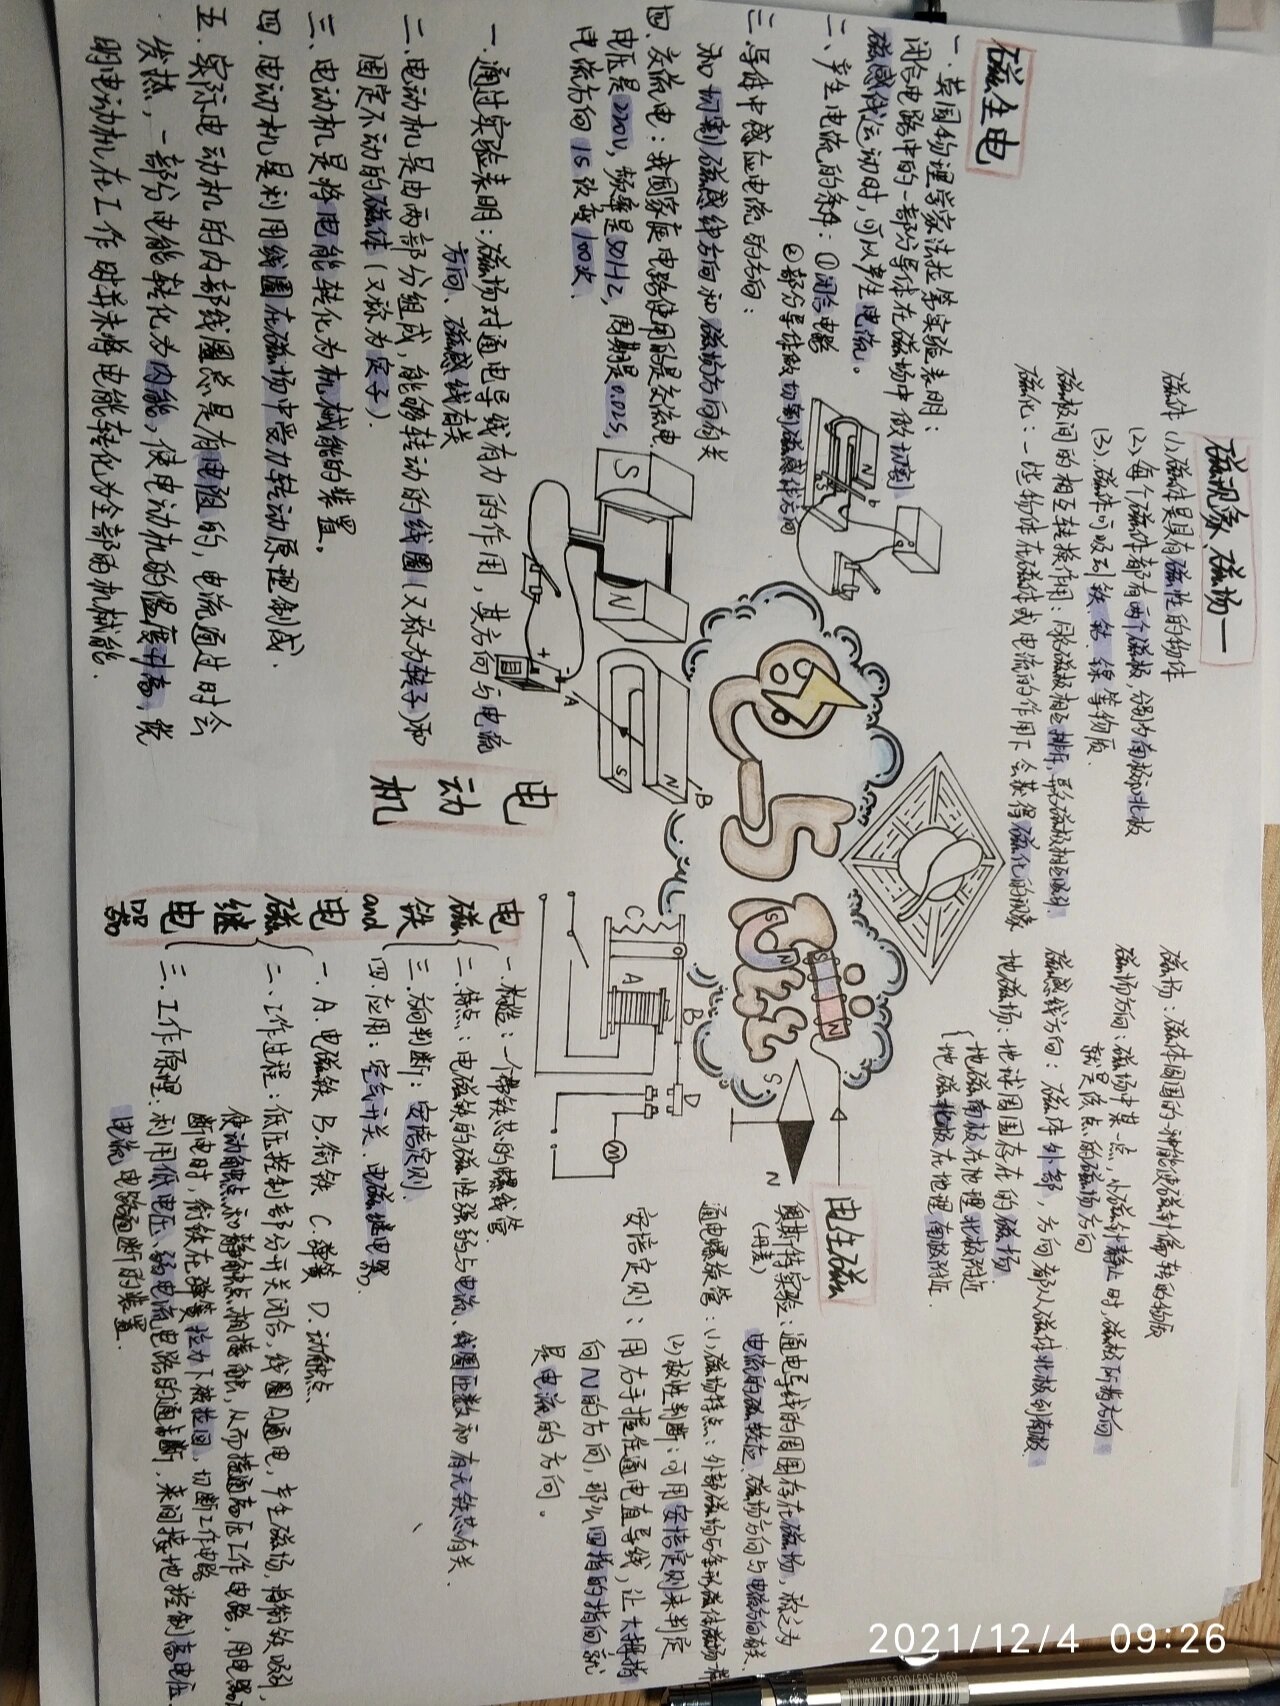 磁现象、磁场
磁体 (1)、磁体是具有磁性的物体
(2)、每个磁体都有两个磁极,分别为南极和北极
(3)、磁体可吸引铁、钴、镍等物质.
磁极间的相互转换作用:同名磁极相互排斥,异名磁极相互吸引.
磁化:一些物体在磁体或电流的作用下会获得磁化的现象
磁场:磁体周围的一种能使磁针偏转的物质
磁场方向:磁场中某一点,小磁针静止时,磁极所指方向
就是该点的磁场方向
磁感线方向:磁体外部,方向都从磁体北极到南极.
地磁场:地球周围存在的磁场
地磁南极在地理北极附近
地磁北极在地理南极附近.
磁生电
一.英国物理学家法拉第实验表明:
闭合电路中的一部分导体在磁场中做切割
磁感线运动时,可以产生电流。
二、产生电流的条件:①闭合电路
②部分导体做切割磁感线方向
三.导体中感应电流的方向:
和切割磁感线方向和磁场方向有关
四.交流电:我国家庭电路使用的是交流电,
电压是220V,频率是50Hz,周期是0.02s,
电流方向1s改变100次.
N
b
G
电与磁
S
N
S
N
S
N
电生磁
奥斯特实验:通电导线的周围存在磁场,称之为
(丹麦)
电流的磁效应.磁场方向与电流方向有关.
通电螺旋管:(1)、磁场特点:外部磁场与条形磁体磁场相
(2)、极性判断:可用安培定则来判定
安培定则:用右手握住通电直导线,让大拇指
向N的方向,那么四指的指向就
是电流的方向。
电动机
一.通过实验表明:磁场对通电导线有力的作用,其方向与电流
方向、磁感线有关
二.电动机是由两部分组成,能够转动的线圈(又称为转子)和
固定不动的磁体(又称为定子).
三.电动机是将电能转化为机械能的装置。
四.电动机是利用线圈在磁场中受力转动原理制成.
五.实际电动机的内部线圈总是有电阻的,电流通过时会
发热,一部分电能转化为内能,使电动机的温度升高,说
明电动机在工作时并未将电能转化为全部的机械能.
S
N
+
-
A
S
N
B
C
A
B
D
M
电磁铁and电磁继电器
一.构造:一个带铁芯的螺线管.
二.特点:电磁铁的磁性强弱与电流、线圈匝数和有无铁芯有关.
三.方向判断:安培定则.
四.应用:空气开关.电磁继电器.
一、A.电磁铁 B.衔铁 C.弹簧 D.动触点.
二、工作过程:低压控制部分开关闭合,线圈内通电,产生磁场,将衔铁吸引,
使动触点和静触点相接触,从而接通高压工作电路,用电器
断电时,衔铁在弹簧拉力下被拉回,切断工作电路
三.工作原理:利用低电压、弱电流电路的通断,来间接地控制高电压
电流电路通断的装置.
2021/12/4 09:26
6947503700836